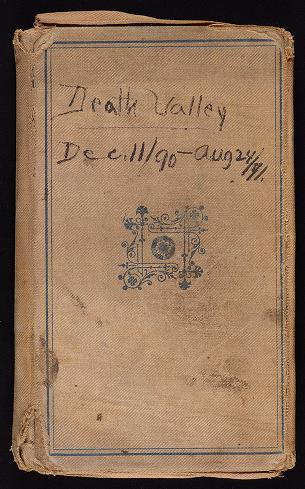 Death Valley
Dec. 11/90 - Aug 24/91.